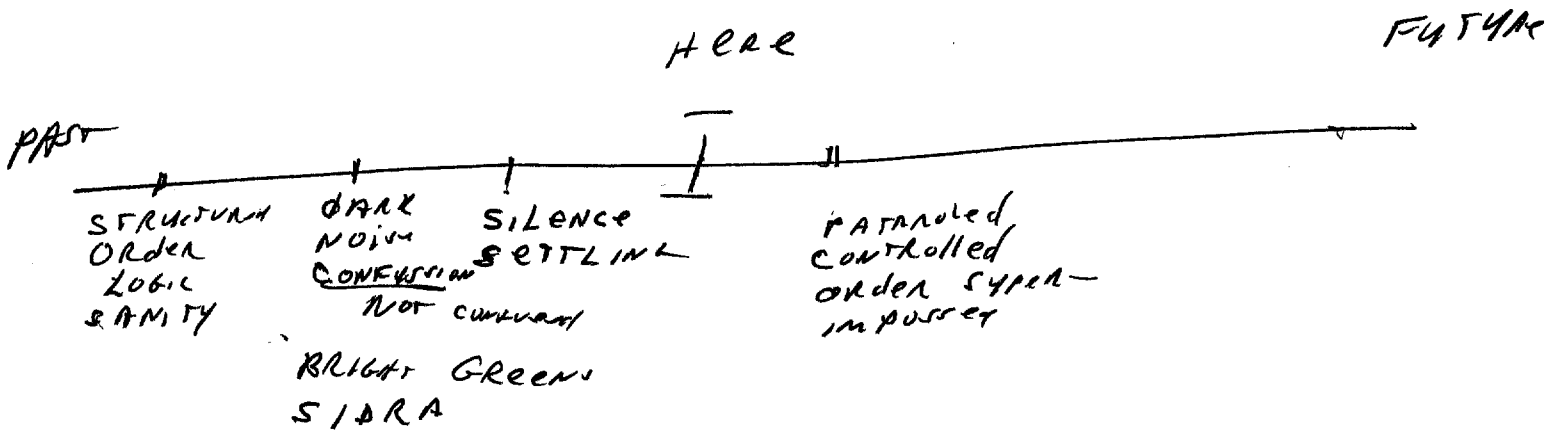 HERE
FUTURE
PAST
STRUCTURE
ORDER
LOGIC
SANITY
DARK
NOISE
CONFUSSION
NOT
BRIGHT GREENS
SIDRA
SILENCE
SETTLING
PATROLED
CONTROLLED
ORDER SUPER-
IMPOSSED